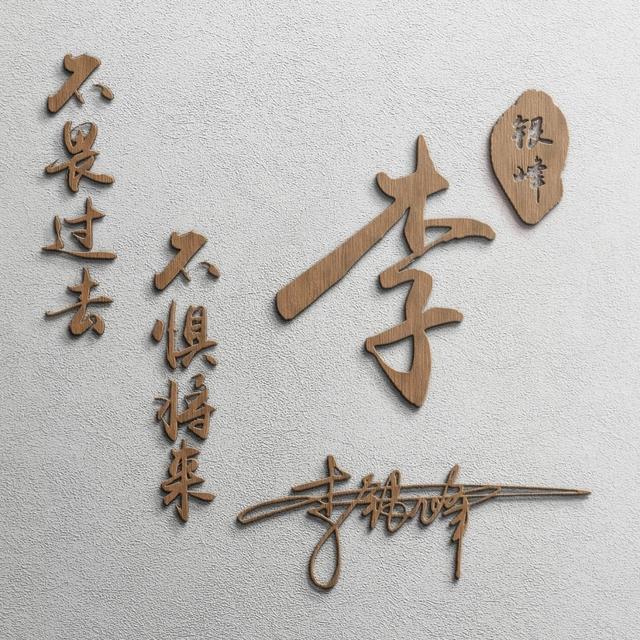 不畏过去
不惧将来
李
银峰
李银峰